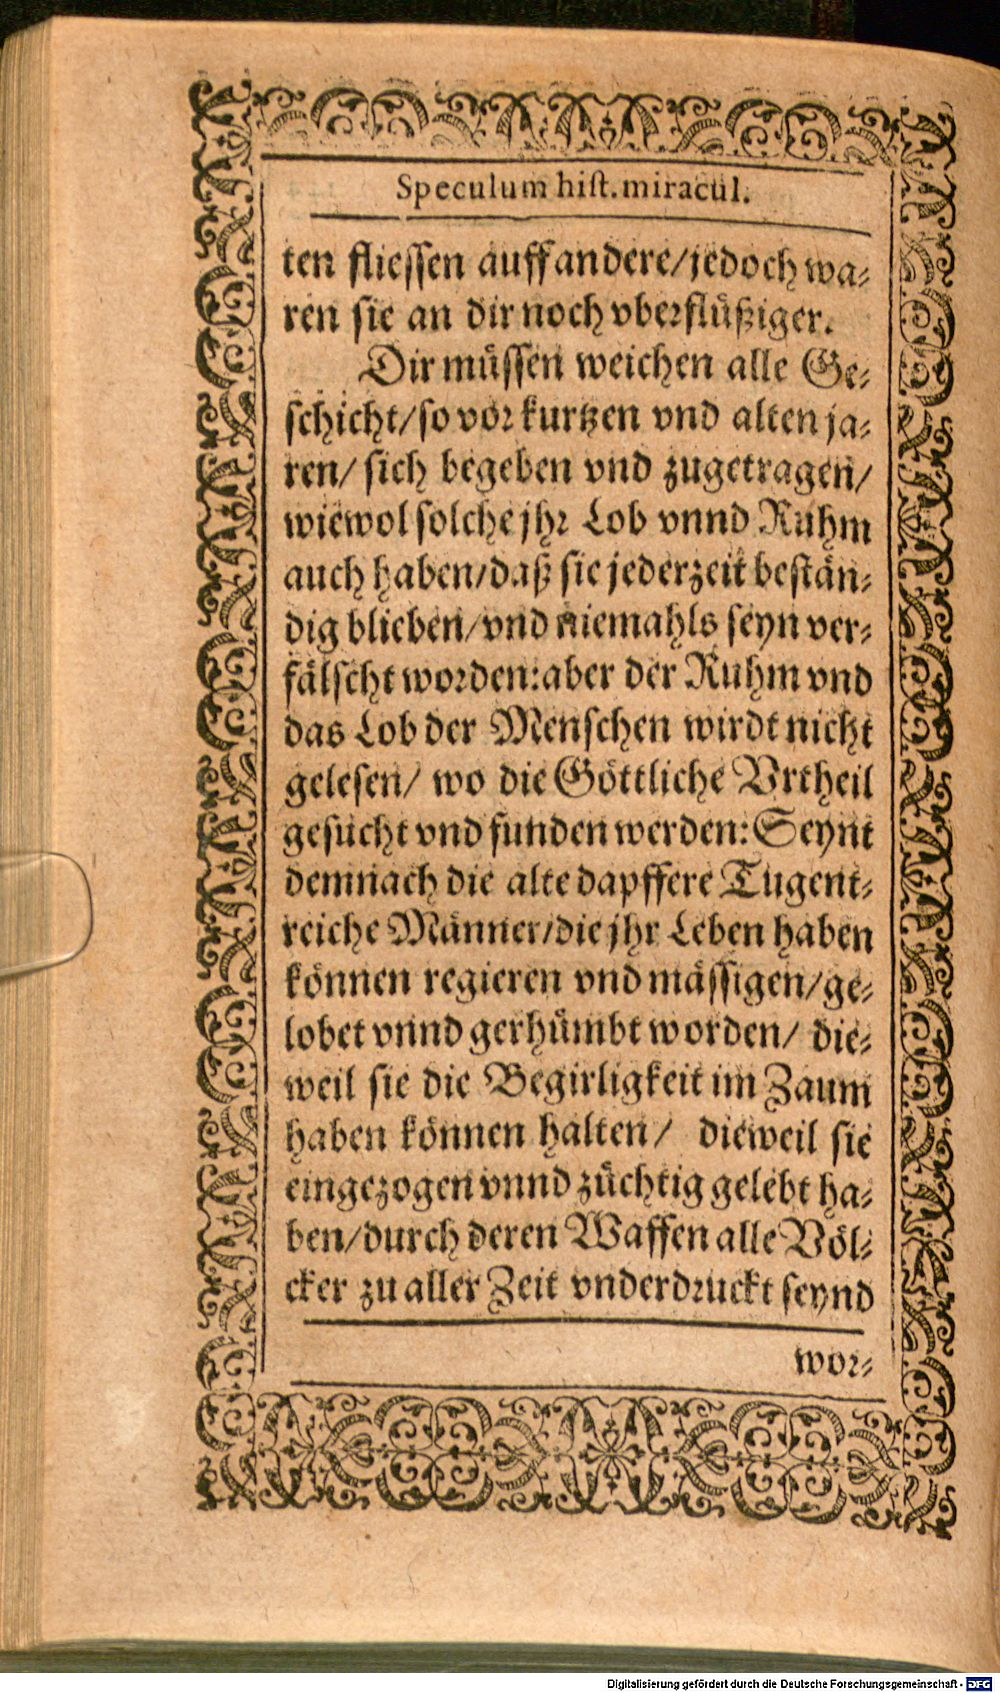 Speculum hiſt. miracul.
ten flieſſen auff andere/ jedoch wa⸗
ren ſie an dir noch vberflüßiger.
Dir müſſen weichen alle Ge⸗
ſchicht/ ſo vor kurtzen vnd alten ja⸗
ren/ ſich begeben vnd zugetragen/
wiewol ſolche jhr Lob vnnd Ruhm
auch haben/ daß ſie jederzeit beſtän⸗
dig blieben/ vnd niemahls ſeyn ver⸗
fälſcht worden: aber der Ruhm vnd
das Lob der Menſchen wirdt nicht
geleſen/ wo die Göttliche Vrtheil
geſucht vnd funden werden: Seynt
demnach die alte dapffere Tugent⸗
reiche Männer/ die jhr Leben haben
können regieren vnd mäſſigen/ ge⸗
lobet vnnd gerhümbt worden/ die⸗
weil ſie die Begirligkeit im Zaum
haben können halten/ dieweil ſie
eingezogen vnnd züchtig gelebt ha⸗
ben/ durch deren Waffen alle Völ⸗
cker zu aller Zeit vnderdruckt ſeynd
wor⸗
Digitalisierung gefördert durch die Deutsche Forschungsgemeinschaft - DFG